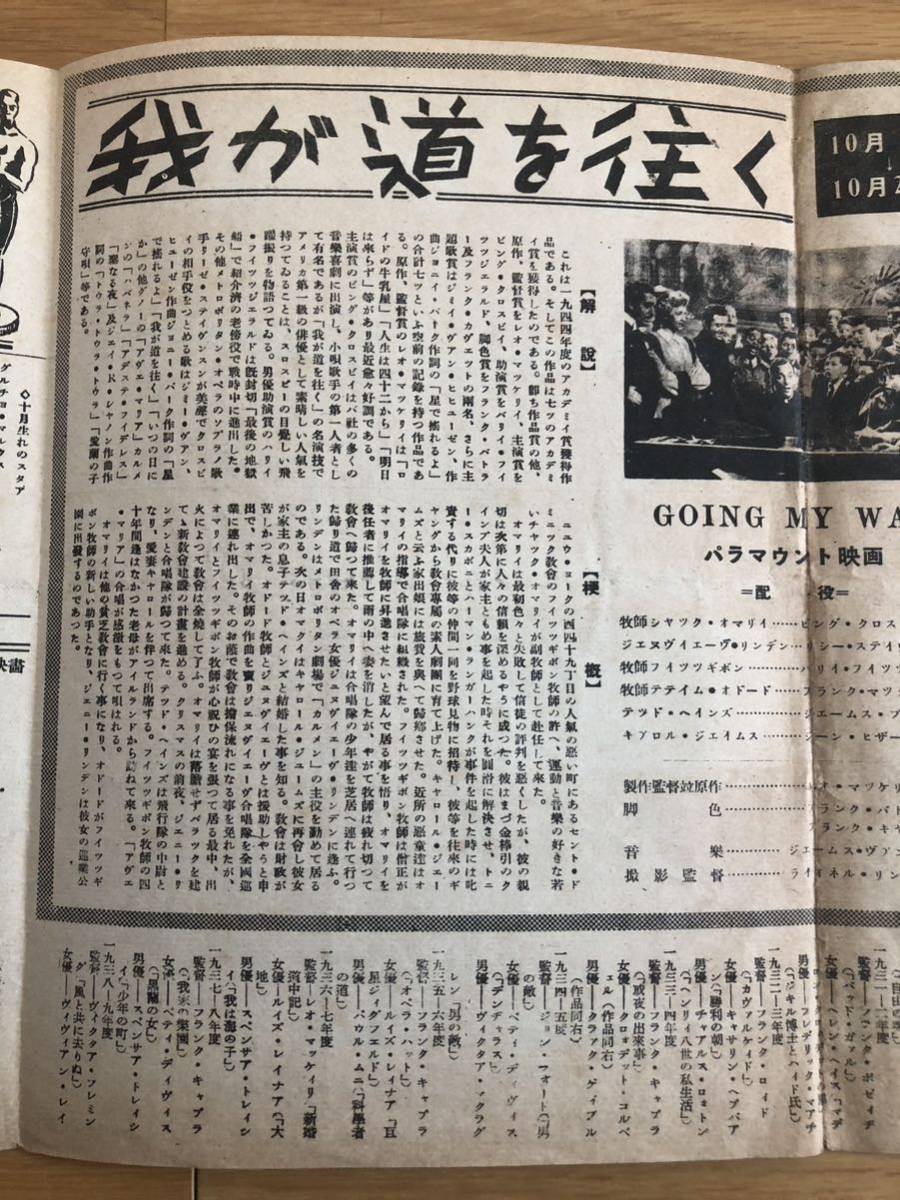 我が道を往く
10月
10月
【解說】
これは一九四四年度のアカデミイ賞獲得作
品である。そしてこの作品は七ツのアカデミ
イ賞を獲得したのである。卽ち作品賞の他、
原作、監督賞をレオ・マッケリイ、主演賞を
ビング・クロスビイ、助演賞をバリイ・フイ
ッツジェラルド、脚色賞をフランク・バトラ
ー及フランク・カヴェットの兩名、さらに主
題歌賞はジミイ・ヴァン・ヒューゼン、作
曲ジョニイ・バーク作詞の「星で搖れるよ」
の合計七ツといふ空前の記錄を持つ作品であ
る。原作、監督賞のレオ・マッケリイは「ロ
イドの牛乳屋」「人生は四十二から」「明日
は來らず」等があり最近愈々好調である。
主演賞のビング・クロスビイはパ社の多くの
音樂喜劇に出演し、小唄歌手の第一人者とし
て有名であるが「我が道を往く」の名演技で
アメリカ第一級の俳優として素晴しい人氣を
持つてゐることは、スロスビーの目覺しい飛
躍振りを物語つてゐる。男優助演賞のハリイ
・フイッツジェラルドは旣封切「最後の地獄
船」で紹介濟の老傍役で戰時中に進出した。
その他メトロポリタン・オペラのソプラノ歌
手リーゼ・スティヴンスンが美聲でクロスビ
イの相手役をつとめる歌はジミー・ヴアン・
ヒューゼン作曲ジョニー・バーク作詞の「星
で搖れるよ」「我が道を往く」「いつの日に
か」の他グノーの「アヴェ・マリア」カルメ
ンの「ハバネラ」「アデステ・フイデレス」
「聖なる夜」及ジェイ・R・シャノン作曲作
詞の「トウラ・トウラ・トウラ」「愛蘭の子
守唄」等である。
【梗槪】
ニユウ・ヨークの西四十九丁目の人氣の惡い町にあるセント・ド
ミニック敎會のフイッツギボン牧師の許へ、運動と音樂の好きな若
いチャック・オマリイが副牧師として赴任して來た。
オマリイは最初色々と失敗して信徒の評判を惡くしたが、彼の親
切は次第に人々の信賴を深めるやうに成つた。彼はまづ金棒引のク
インプ夫人が家主ともめ事を起した時それを圓滑に解決させ、トニ
ー・スカポニとハーマン・ランガーハンクが事件を起した時には叱
責する代りに彼等の仲間一同を野球見物に招待し、彼等を往來のギ
ャングから敎會專屬の素人劇團に育て上げた。キャロール・ジェー
ムズと云ふ家出娘には旅費を與へて歸鄕させた。近所の惡童達はオ
マリイの指導で合唱隊に組織された。フイッツギボン牧師は僧正が
オマリイを牧師に昇進させたいと望んで居る事を悟り、オマリイを
後任者に推薦して雨の中へ姿を消したが、やがて牧師は疲れ切つて
敎會へ歸つて來た。オマリイは合唱隊の少年達を芝居へ連れて行つ
た歸り道で田舍のオペラ女優ジェヌヴイエーヴ・リンデンに逢ふ。
リンデンはメトロポリタン劇場で「カルメン」の主役を勤めて居る
のである。次の日オマクイはキャロール・ジェームズに再會し彼女
が家主の息子テッド・ヘインズと結婚した事を知る。敎會は財政が
苦しかつた。オドード牧師とジェヌヴイエーヴとは援助しやうと申
出で、オマリイ牧師の作曲を賣りジェヌヴイエーヴ合唱隊を全國巡
業に連れ出した。そのお蔭で敎會は擔保流れになる事を免れたが、
オマリイとフイッツギボン牧師が心祝ひの宴を張つて居る最中、出
火によつて敎會は全燒して了ふ。オマリイは落膽せずバラックを建
てゝ新敎會建設の計畫を進める。クリスマスの前夜、ジェニー・リ
ンデンと合唱隊が歸つて來た。テッド・ヘインズは飛行隊の中尉と
なり、愛妻キャロールを伴つて出席する。フイッツギボン牧師の四
十年間逢はなかつた老母がアイルランドから訪ねて來る。「アヴェ
・マリア」の合唱が感激をもつて唄はれる。
オマリイは他の貧乏敎會に行く事になり、オドードがフイツギ
ボン牧師の新しい助手となり、ジェニー・リンデンは彼女の巡業公
園に出發するのであつた。
GOING MY WA
パラマウント映画
=配役=
牧師シャツク・オマリイ……ビング・クロス
ジエヌヴイエーヴ・リンデン…リシー・ステイ
牧師フイツツギボン………バリイ・フイツ
牧師テテイム・オドード……フランク・マツ
テツド・ヘインズ………ジエームス・ブ
キアロル・ジエイムス………ジーン・ヒザー
製作監督竝原作………レオ・マツケリ
脚色………フランク・バト
フランク・キャ
音樂………ジェームス・ヴアン
撮影監督………ライオネル・リン
◇十月生れのスタア
グルチョ・マルクス
映畫
「自由
一九三一—二年度
監督—フランク・ボゼィヂ
(「バッド・ガアル」)
女優—ヘレン・ヘイス「マデ
男優—フレデリック・マアチ
(「ジキル博士とハイド氏」)
一九三二—三年度
監督—フランク・ロイド
(「カヴァルケイド」)
女優—キャサリン・ヘプバア
ン(「勝利の朝」)
男優—チャアルス・ロオトン
(「ヘンリイ八世の私生活」)
一九三三—四年度
監督—フランク・キャプラ
(「或夜の出來事」)
女優—クロオデット・コルベ
エル(作品同右)
男優—クラアク・ゲイブル
(作品同右)
一九三四—五年度
監督—ジョン・フォード(「男
の敵」)
女優—ベティ・デイヴィス
(「デンヂャラス」)
男優—ヴィクタア・マクラグ
レン「男の敵」)
一九三五—六年度
監督—フランク・キャプラ
(「オペラ・ハット」)
女優—ルイズ・レイナア「巨
星ジイグフエルド」)
男優—パウル・ムニ(「科學者
の道」)
一九三六—七年度
監督—レオ・マッケリイ「新婚
道中記」)
女優—ルイズ・レイナア(「大
地」)
男優—スペンサア・トレイシ
イ(「我は海の子」)
一九三七—八年度
監督—フランク・キャプラ
(「我家の樂園」)
女優—ベティ・デイヴィス
(「黑蘭の女」)
男優—スペンサア・トレイシ
イ(「少年の町」)
一九三八—九年度
監督—ヴィクタア・フレミン
グ(「風と共に去りぬ」)
女優—ヴィヴィアン・レイ